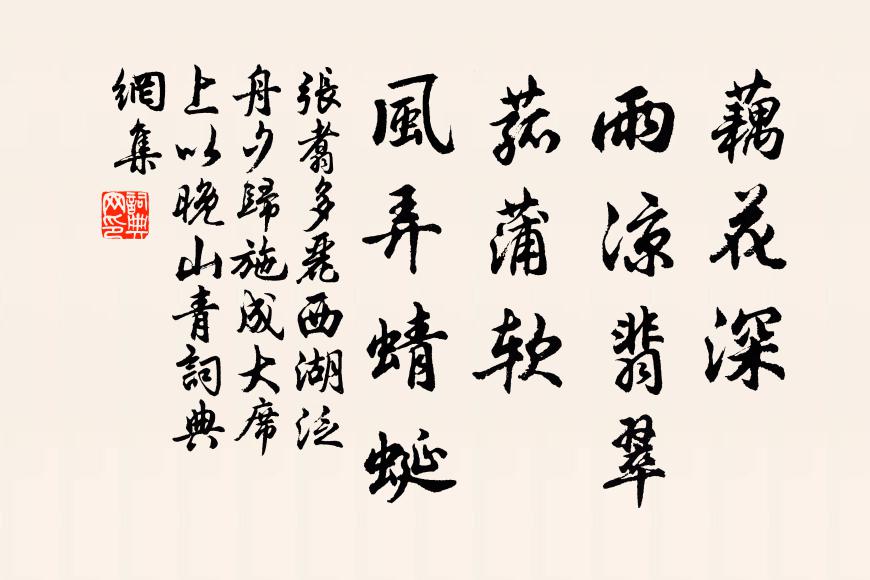 藕花深
雨涼翡翠
菰蒲軟
風弄蜻蜓
張翥多麗西湖泛
舟夕歸施成大席
上以晚山青詞典
網集
詞典
网印